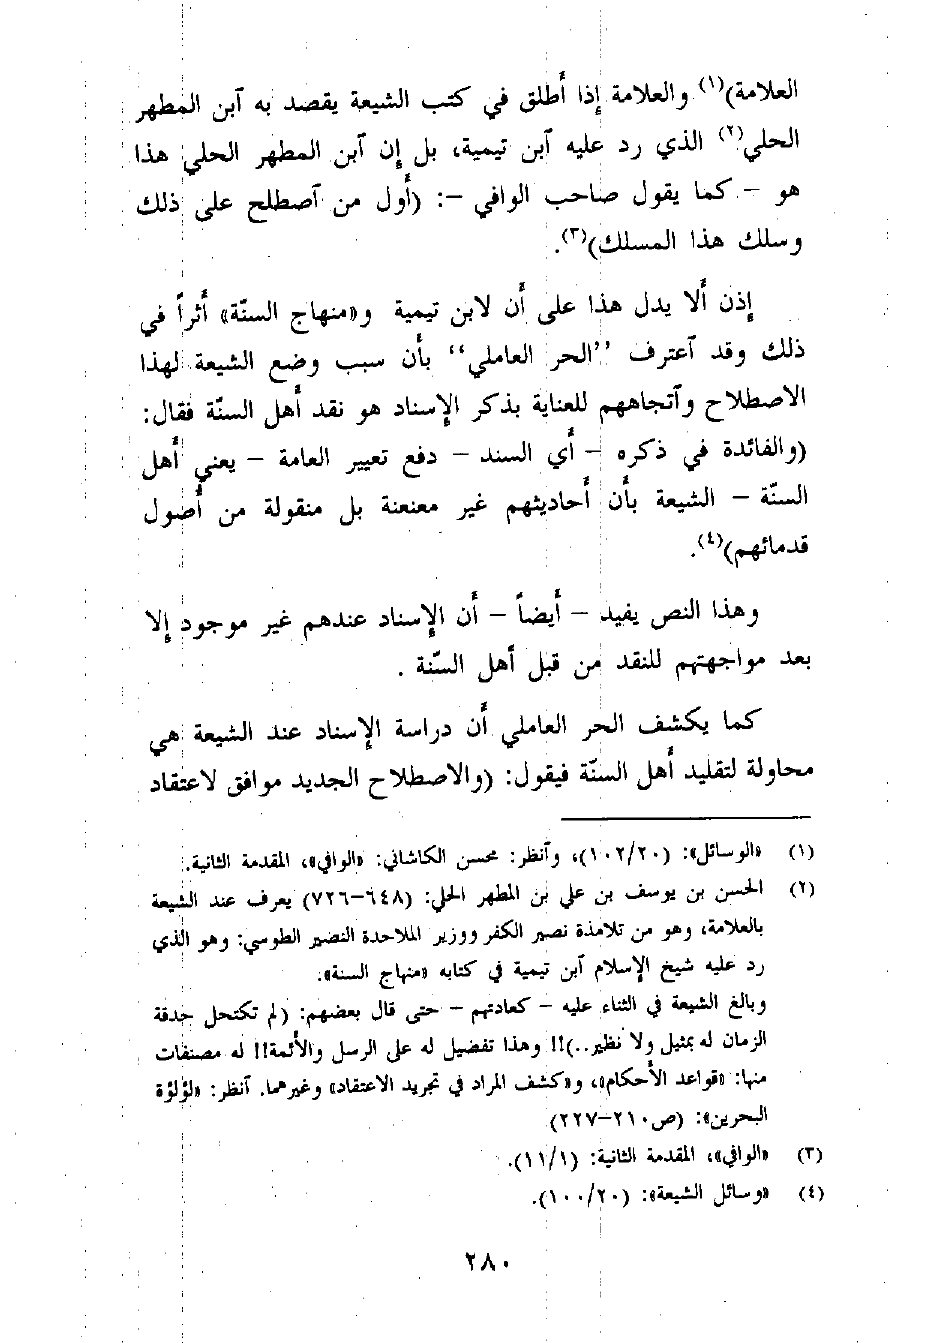 العلامة)(١) والعلامة إذا أُطلق في كتب الشيعة يقصد به آبن المطهر
الحلي(٢) الذي رد عليه آبن تيمية، بل إن آبن المطهر الحلي هذا
هو – كما يقول صاحب الوافي –: (أول من آصطلح على ذلك
وسلك هذا المسلك)(٣).
إذن ألا يدل هذا على أن لابن تيمية و«منهاج السنّة» أثراً في
ذلك وقد آعترف ’’الحر العاملي‘‘ بأن سبب وضع الشيعة لهذا
الاصطلاح وآتجاههم للعناية بذكر الإسناد هو نقد أهل السنّة فقال:
(والفائدة في ذكره – أي السند – دفع تعيير العامة – يعني أهل
السنّة – الشيعة بأن أحاديثهم غير معنعنة بل منقولة من أصول
قدمائهم)(٤).
وهذا النص يفيد – أيضاً – أن الإسناد عندهم غير موجود إلا
بعد مواجهتهم للنقد من قبل أهل السنّة .
كما يكشف الحر العاملي أن دراسة الإسناد عند الشيعة هي
محاولة لتقليد أهل السنّة فيقول: (والاصطلاح الجديد موافق لاعتقاد
(١) «الوسائل»: (١٠٢/٢٠)، وآنظر: محسن الكاشاني: «الوافي»، المقدمة الثانية.
(٢) الحسن بن يوسف بن علي بن المطهر الحلي: (٦٤٨–٧٢٦) يعرف عند الشيعة
بالعلامة، وهو من تلامذة نصير الكفر ووزير الملاحدة النضير الطوسي: وهو الذي
رد عليه شيخ الإسلام آبن تيمية في كتابه «منهاج السنة».
وبالغ الشيعة في الثناء عليه – كعادتهم – حتى قال بعضهم: (لم تكتحل حدقة
الزمان له بمثيل ولا نظير..)!! وهذا تفضيل له على الرسل والأئمة!! له مصنفات
منها: «قواعد الأحكام»، و«كشف المراد في تجريد الاعتقاد» وغيرهما. آنظر: «لؤلؤة
البحرين»: (ص٢١٠–٢٢٧)
(٣) «الوافي»، المقدمة الثانية: (١١/١).
(٤) «وسائل الشيعة»: (١٠٠/٢٠).
٢٨٠